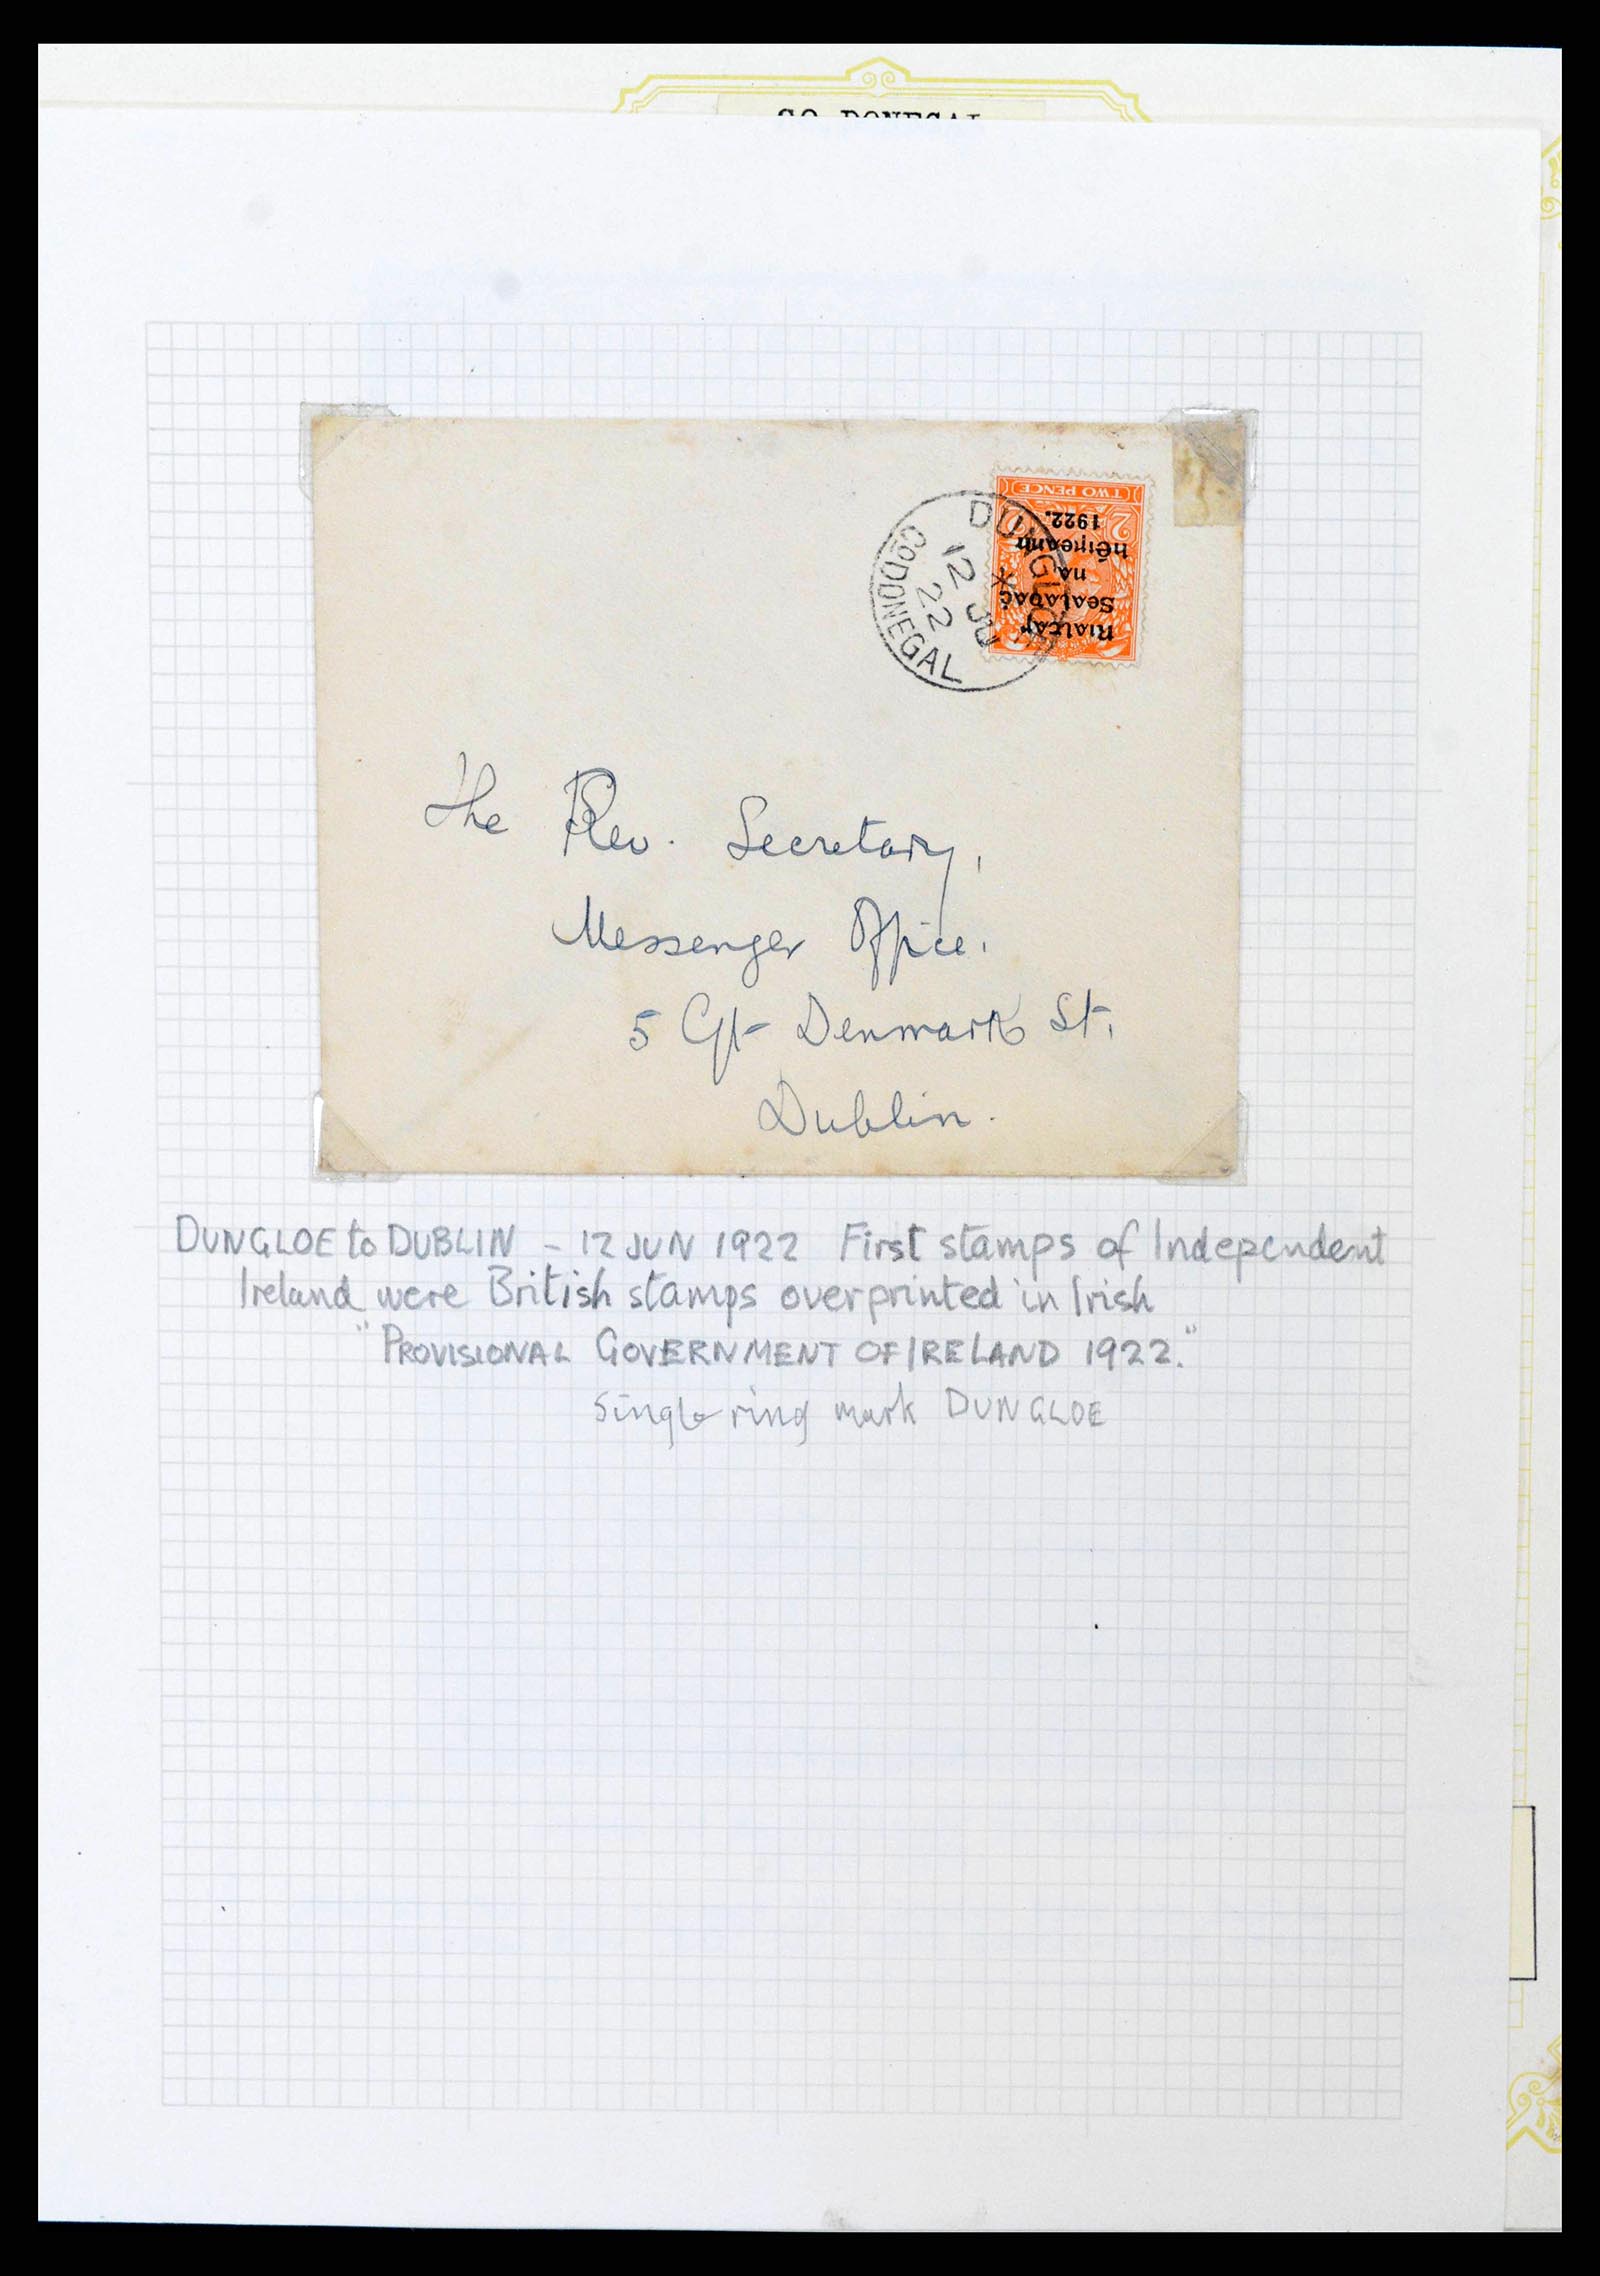 CO DONEGAL
DUNGLOE
12 JU
22
Co DONEGAL
TWO PENCE
2
Rialtas
Sealadaċ
na
hÉireann
1922.
The Rev. Secretary,
Messenger Office.
5 Gt Denmark St.
Dublin.
DUNGLOE to DUBLIN - 12 JUN 1922 First stamps of Independent
Ireland were British stamps overprinted in Irish
"PROVISIONAL GOVERNMENT OF IRELAND 1922."
Single ring mark DUNGLOE